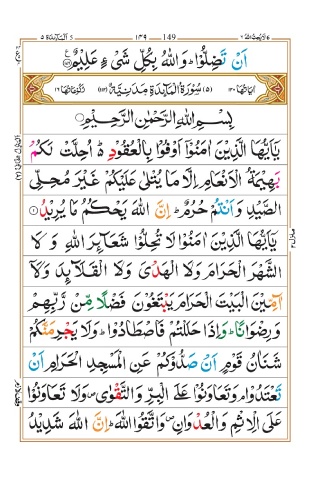 المآئدة ٥ ١٤٩ 149 لا يحب الله ٦
اَنْ تَضِلُّوْا ؕ وَاللّٰهُ بِكُلِّ شَیْءٍ عَلِیْمٌ
اٰیَاتُهَا ١٢٠ (٥) سُوْرَةُ الْمَآئِدَةِ مَدَنِیَّةٌ (١١٢) رُكُوْعَاتُهَا ١٦
بِسْمِ اللّٰهِ الرَّحْمٰنِ الرَّحِیْمِ
یٰۤاَیُّهَا الَّذِیْنَ اٰمَنُوْۤا اَوْفُوْا بِالْعُقُوْدِ ؕ اُحِلَّتْ لَكُمْ
بَهِیْمَةُ الْاَنْعَامِ اِلَّا مَا یُتْلٰى عَلَیْكُمْ غَیْرَ مُحِلِّی
الصَّیْدِ وَاَنْتُمْ حُرُمٌ ؕ اِنَّ اللّٰهَ یَحْكُمُ مَا یُرِیْدُ ۝١
یٰۤاَیُّهَا الَّذِیْنَ اٰمَنُوْا لَا تُحِلُّوْا شَعَآئِرَ اللّٰهِ وَلَا
الشَّهْرَ الْحَرَامَ وَلَا الْهَدْیَ وَلَا الْقَلَآئِدَ وَلَاۤ
آٰمِّیْنَ الْبَیْتَ الْحَرَامَ یَبْتَغُوْنَ فَضْلًا مِّنْ رَّبِّهِمْ
وَرِضْوَانًا ؕ وَاِذَا حَلَلْتُمْ فَاصْطَادُوْا ؕ وَلَا یَجْرِمَنَّكُمْ
شَنَاٰنُ قَوْمٍ اَنْ صَدُّوْكُمْ عَنِ الْمَسْجِدِ الْحَرَامِ اَنْ
تَعْتَدُوْا ۘ وَتَعَاوَنُوْا عَلَى الْبِرِّ وَالتَّقْوٰى ۪ وَلَا تَعَاوَنُوْا
عَلَى الْاِثْمِ وَالْعُدْوَانِ ۪ وَاتَّقُوا اللّٰهَ ؕ اِنَّ اللّٰهَ شَدِیْدُ